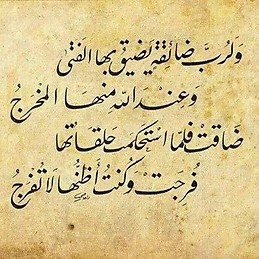 وَلَرُبَّ ضَائِقَةٍ يَضِيقُ بِهَا الفَتَى
وَعِنْدَ اللّٰهِ مِنْهَا المَخْرَجُ
ضَاقَتْ فَلَمَّا اسْتَحْكَمَتْ حَلَقَاتُهَا
فُرِجَتْ وَكُنْتُ أَظُنُّهَا لَا تُفْرَجُ